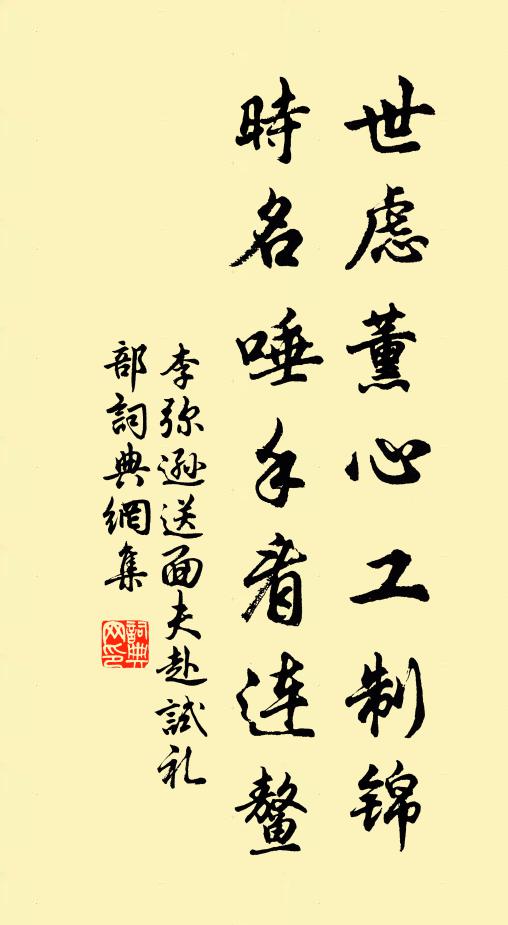 世虑薰心工制锦
時名唾手看连鳌
李弥逊送面夫赴試礼
部詞典網集
詞典
网印